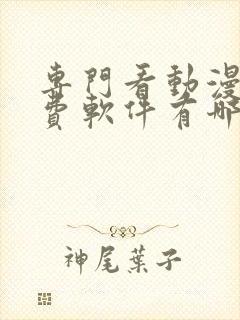 專門看動漫
費軟件有哪
神尾葉子